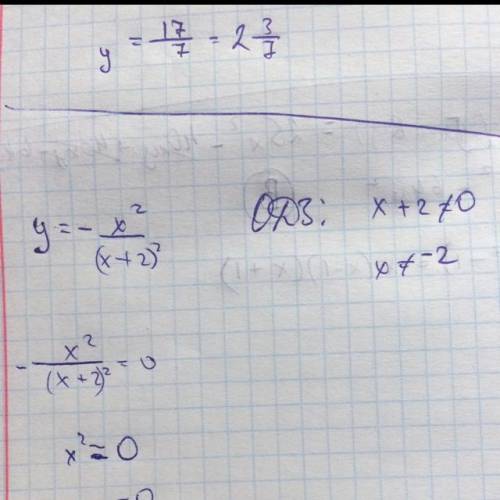 y = 17/7 = 2 3/7
y = - x²/(x+2)²
ОДЗ: x + 2 ≠ 0
x ≠ -2
- x²/(x+2)² = 0
x² = 0
=0